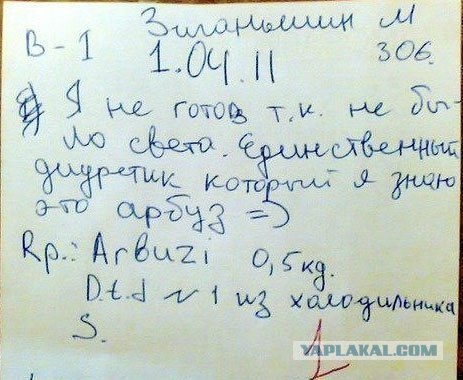 Зиганьшин М
В-I 1.04.11 306.
Я не готов т.к. не бы-
ло света. Единственный
диуретик который я знаю
это арбуз =)
Rp.: Arbuzi 0,5 кд.
D.t.d N 1 из холодильника
S.
YAPLAKAL.COM